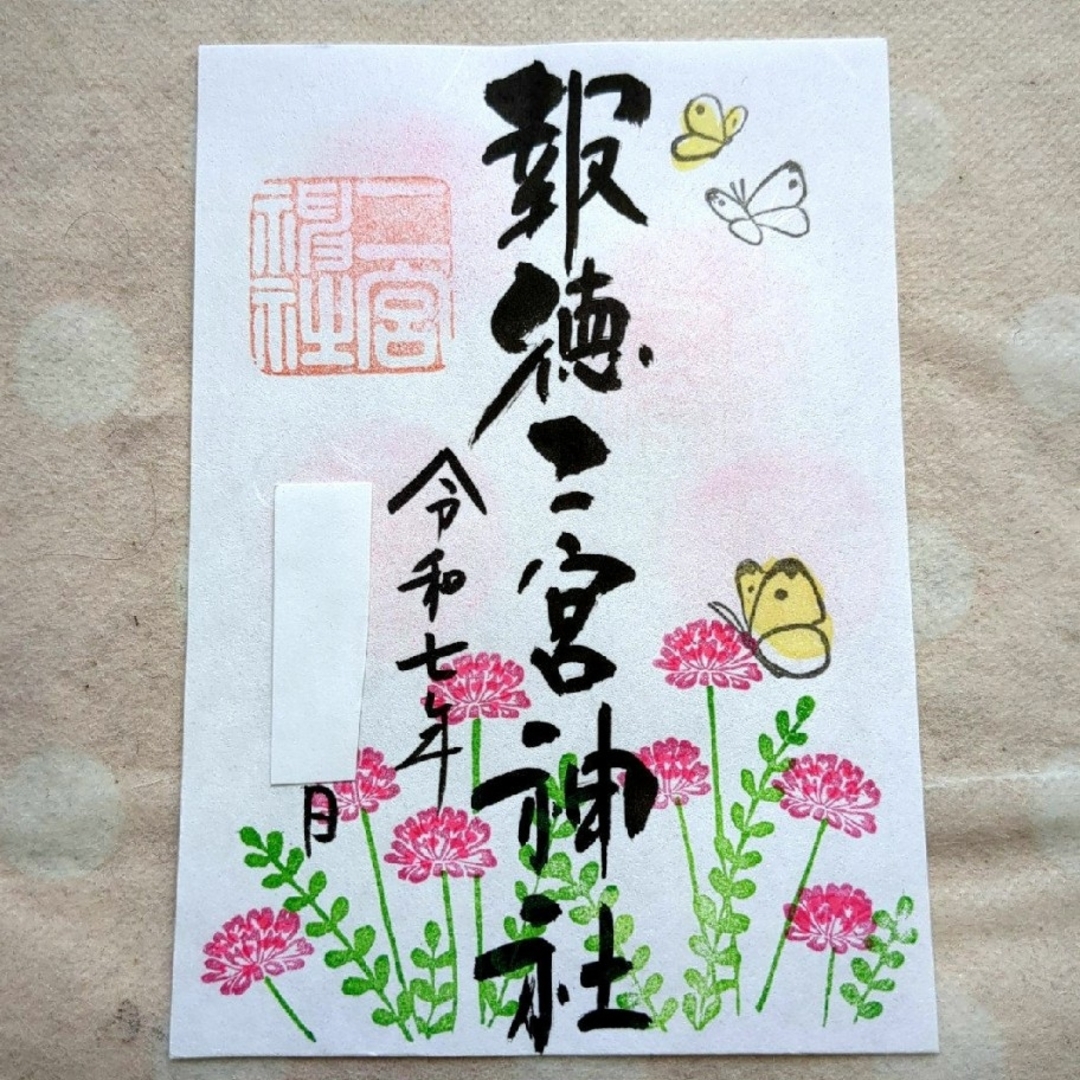 報徳二宮神社
令和七年
日
二宮
神社